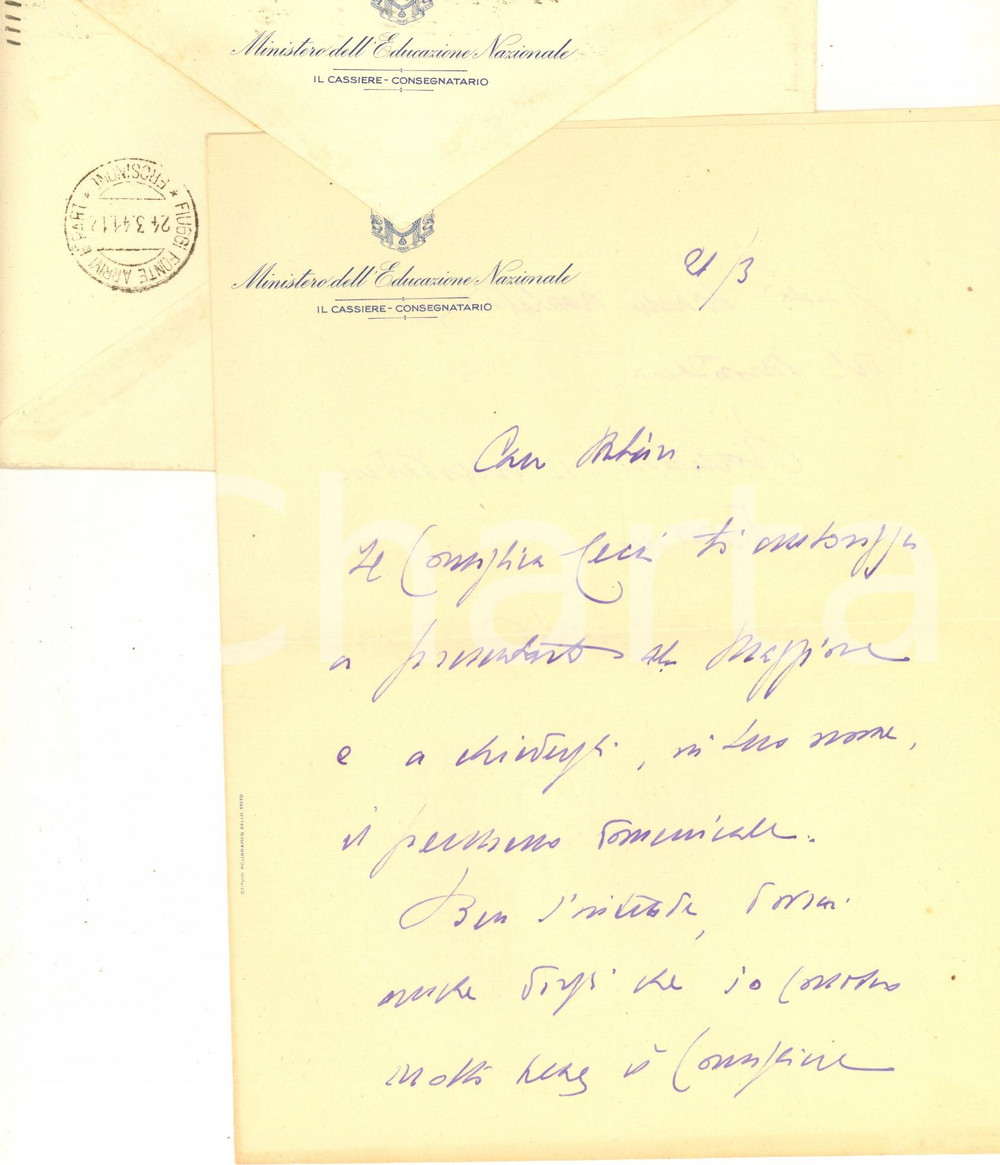 Ministero dell'Educazione Nazionale
IL CASSIERE - CONSEGNATARIO
FIUGGI FONTE ARRIVI E PART.
* FROSINONE *
24.3.41.
Ministero dell'Educazione Nazionale
IL CASSIERE - CONSEGNATARIO
21/3
Caro
Il Consigliere Cecci ti autorizza
a presentarti al Maggiore
e a chiedergli, in suo nome,
il permesso domenicale.
Ben s'intende, dovrai
anche dirgli che io conosco
molto bene il Consigliere
Charta